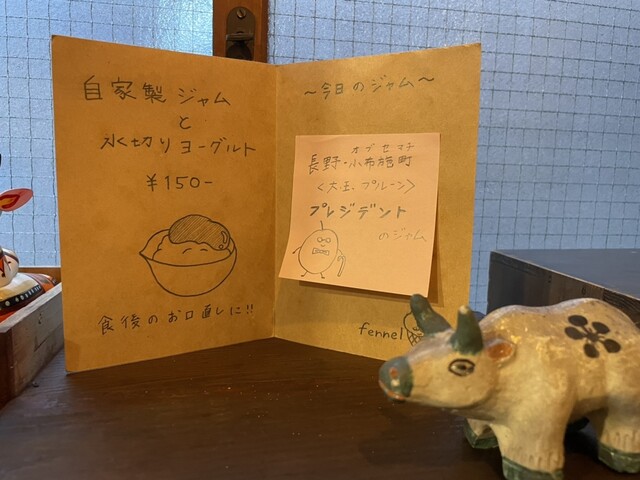 自家製 ジャム
と
水切りヨーグルト
¥150-
食後のお口直しに!!
~今日のジャム~
オブセマチ
長野・小布施町
<大玉プルーン>
プレジデント
のジャム
fennel